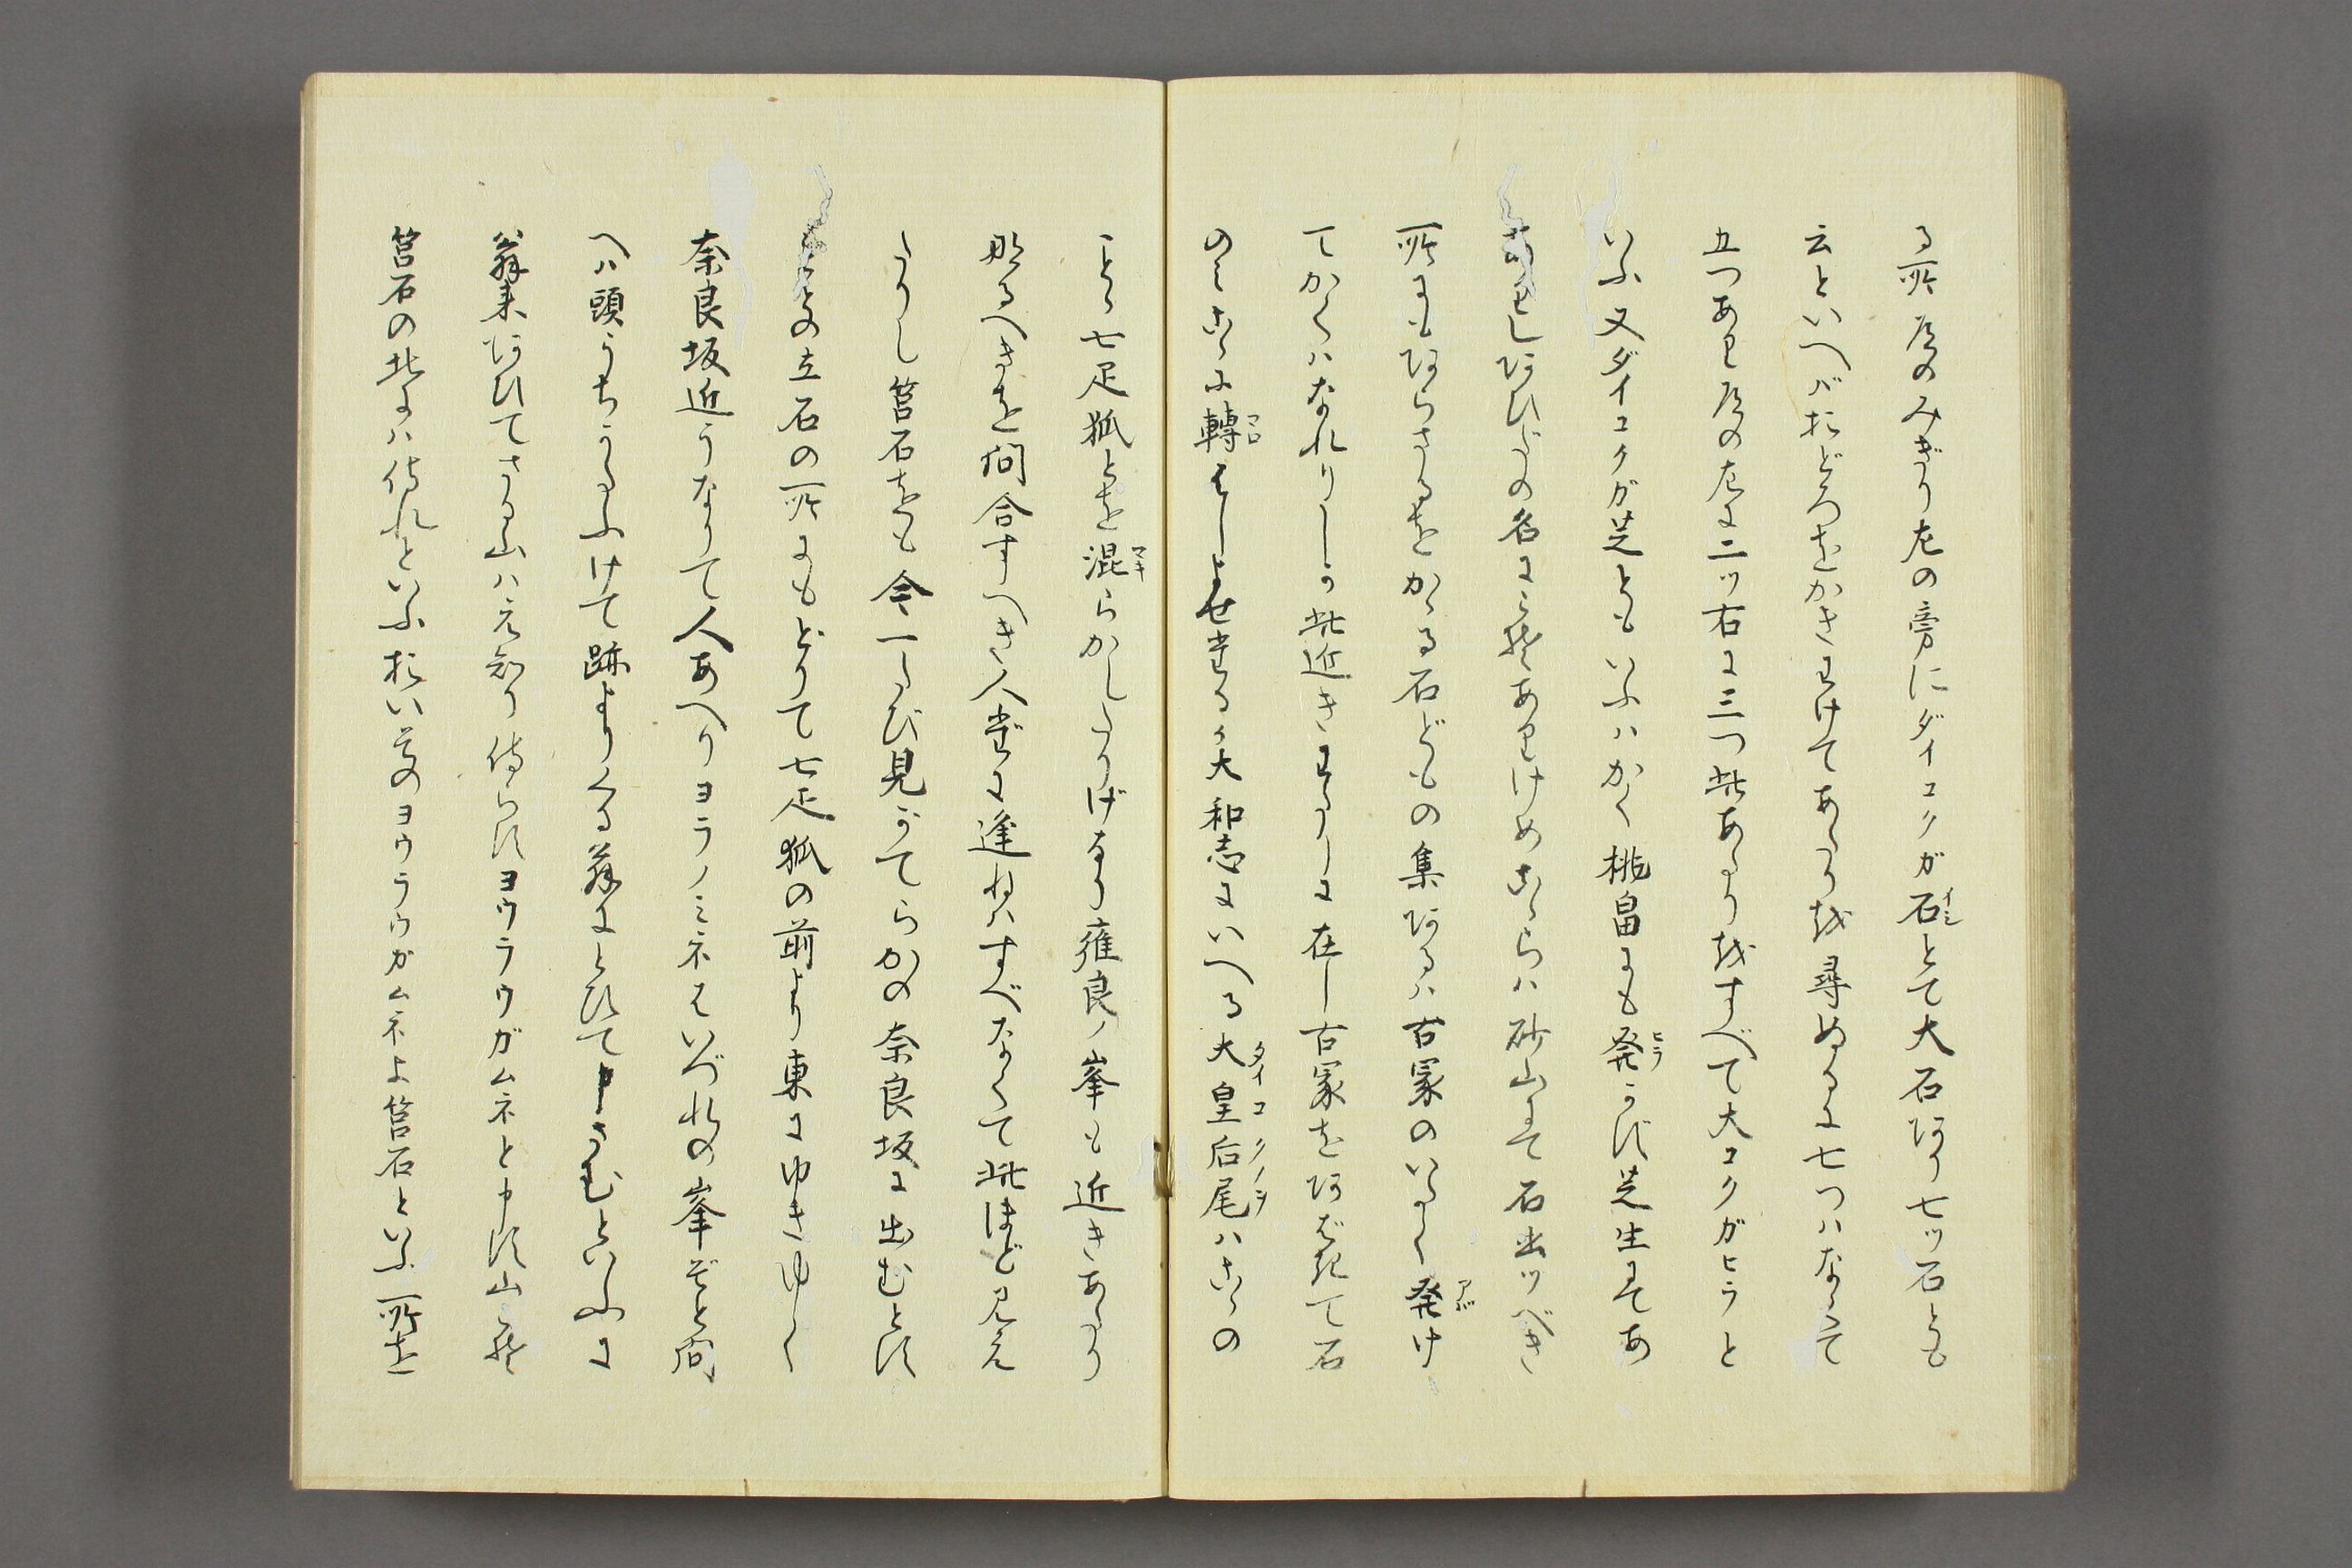 る所道のみぎり左の旁にダイコクガ石とて大石阿り七ッ石とも
云といへバおどろをかきわけてあたり越尋ぬるに七つハなくて
五つあり道の左に二ッ右に三つ此あたり越すべて大コクガヒラと
いふ又ダイコクガ芝ともいふハかく桃畠にも発らず芝生にてあ
りし阿ひだの名にこそありけめこゝらハ砂山にて石出ッべき
所にも阿らさるをかゝる石どもの集阿るハ古冢のいたく発け
てかくハなれりしか此近きわたりに在し古冢を阿ばきて石
のミこゝに轉ばしよせたるか大和志にいへる大皇后尾ハこゝの
ことゝ七疋狐とを混らかしたりげなり雍良ノ峯も近きあたり
那るへきを問合すへき人だに逢ねハすべなくて此ほど見え
たりし筥石をも今一たび見がてらかの奈良坂に出むとす
もとの立石の所にもどりて七疋狐の前より東にゆきゆく
奈良坂近うなりて人あへりヨラノミネはいづれの峯ぞと問
へハ頭うちかたふけて跡よりくる翁にとひて申さむといふに
翁来阿ひてさる山ハえ知り侍らずヨウラウガムネと申す山こそ
筥石の北にハ侍れといふおい其のヨウラウガムネよ筥石といふ所を